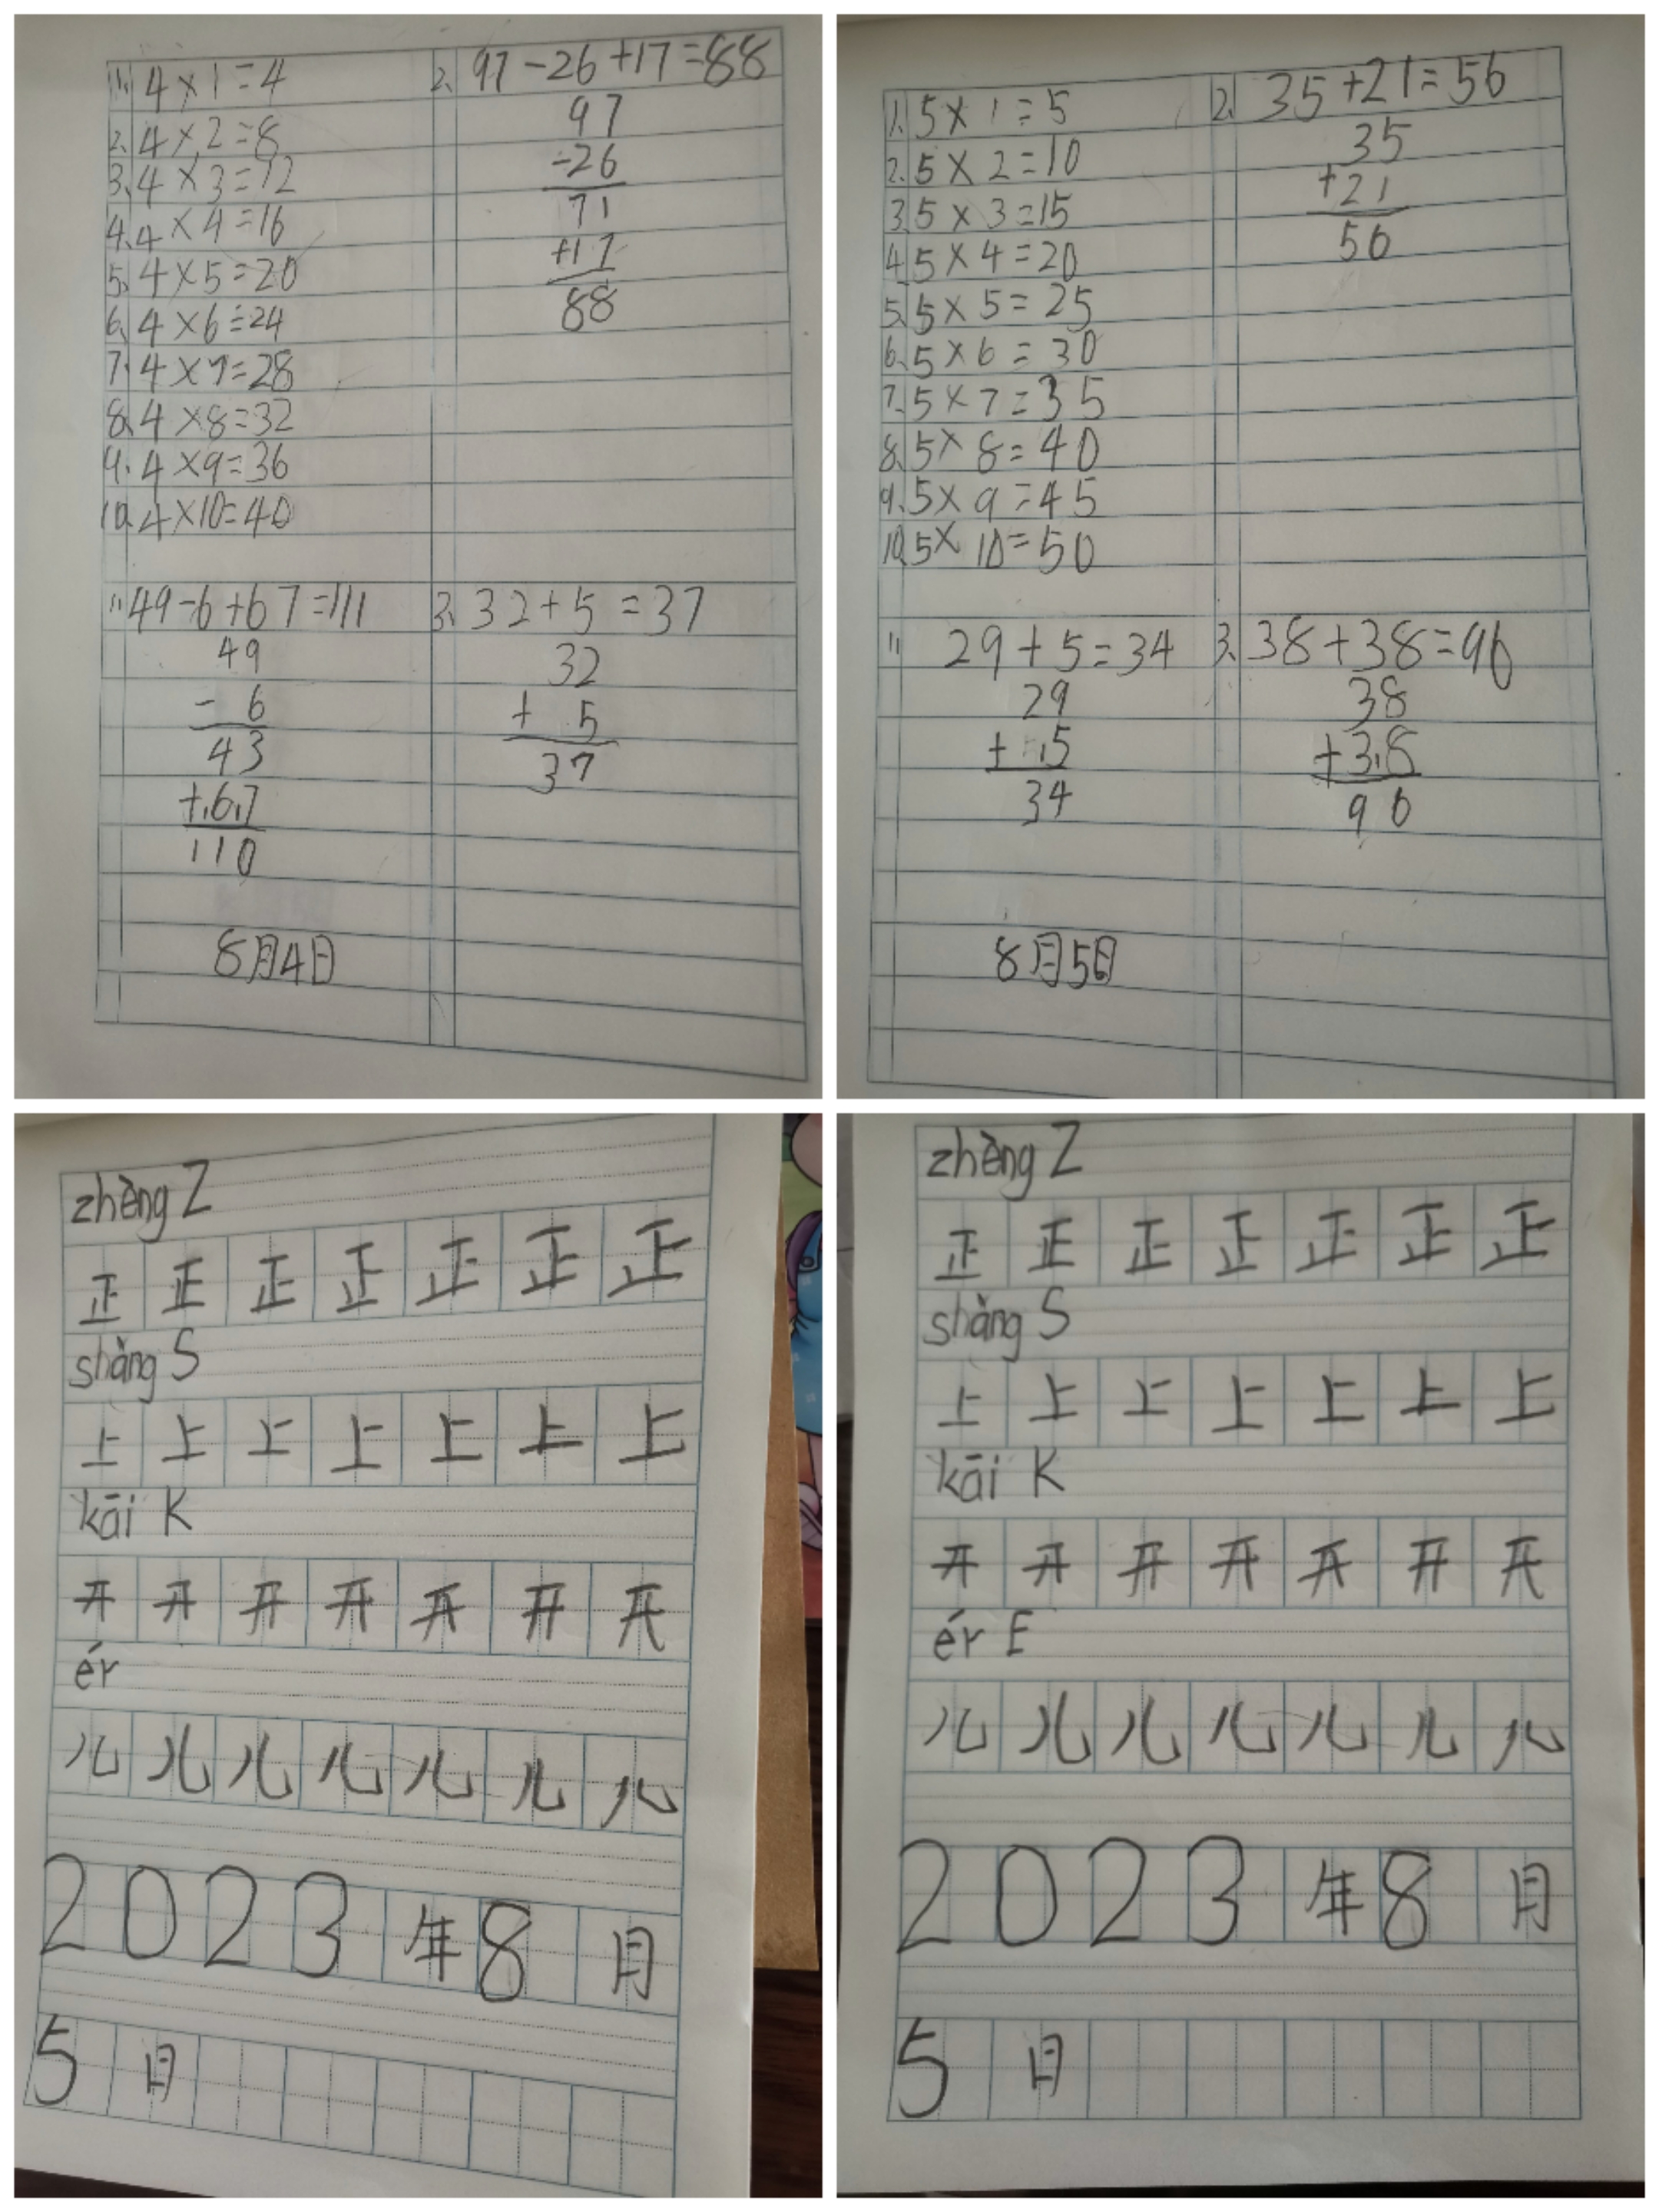 1. 4×1=4
2. 4×2=8
3. 4×3=12
4. 4×4=16
5. 4×5=20
6. 4×6=24
7. 4×7=28
8. 4×8=32
9. 4×9=36
10. 4×10=40
1. 49-6+67=111
49
- 6
43
+.6.7
110
8月4日
2. 97-26+17=88
97
-26
71
+17
88
3. 32+5=37
32
+ 5
37
1. 5×1=5
2. 5×2=10
3. 5×3=15
4. 5×4=20
5. 5×5=25
6. 5×6=30
7. 5×7=35
8. 5×8=40
9. 5×9=45
10. 5×10=50
1. 29+5=34
29
+ .5
34
8月5日
2. 35+21=56
35
+21
56
3. 38+38=96
38
+3.8
96
zhèng Z
正 正 正 正 正 正 正
shàng S
上 上 上 上 上 上 上
kāi K
开 开 开 开 开 开 开
ér
儿 儿 儿 儿 儿 儿 儿
2023年8月
5日
zhèng Z
正 正 正 正 正 正 正
shàng S
上 上 上 上 上 上 上
kāi K
开 开 开 开 开 开 开
ér E
儿 儿 儿 儿 儿 儿 儿
2023年8月
5日